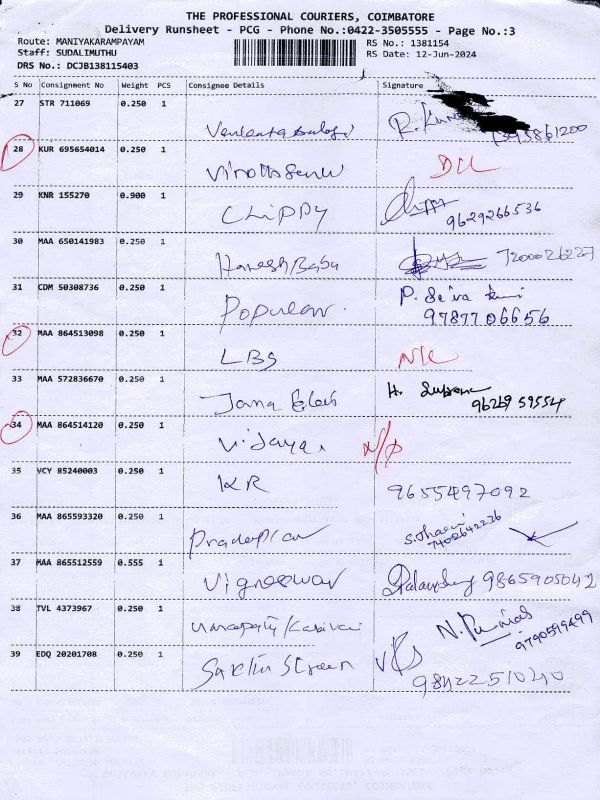 THE PROFESSIONAL COURIERS, COIMBATORE
Delivery Runsheet - PCG - Phone No.:0422-3505555 - Page No.:3
Route: MANIYAKARAMPAYAM RS No.: 1381154
Staff: SUDALIMUTHU RS Date: 12-Jun-2024
DRS No.: DCJB138115403
S No Consignment No Weight PCS Consignee Details Signature
27 STR 711069 0.250 1
28 KUR 695654014 0.250 1
DL
29 KNR 155270 0.900 1
CHIPPY 9629266536
30 MAA 650141983 0.250 1
Hamesh/Babu 7200026227
31 CDM 50308736 0.250 1
Popular. P. Selva
9787706656
32 MAA 864513098 0.250 1
LBS
33 MAA 572836670 0.250 1
Jana H.
96269 59554
34 MAA 864514120 0.250 1
Vijaya. N/A
35 VCY 85240003 0.250 1
KR 9655497092
36 MAA 865593320 0.250 1
7402642236
37 MAA 865512559 0.555 1
Vigneswar 9865905042
38 TVL 4373967 0.250 1
N.
9790599499
39 EDQ 20201708 0.250 1
Sakthi Screen
9842251040